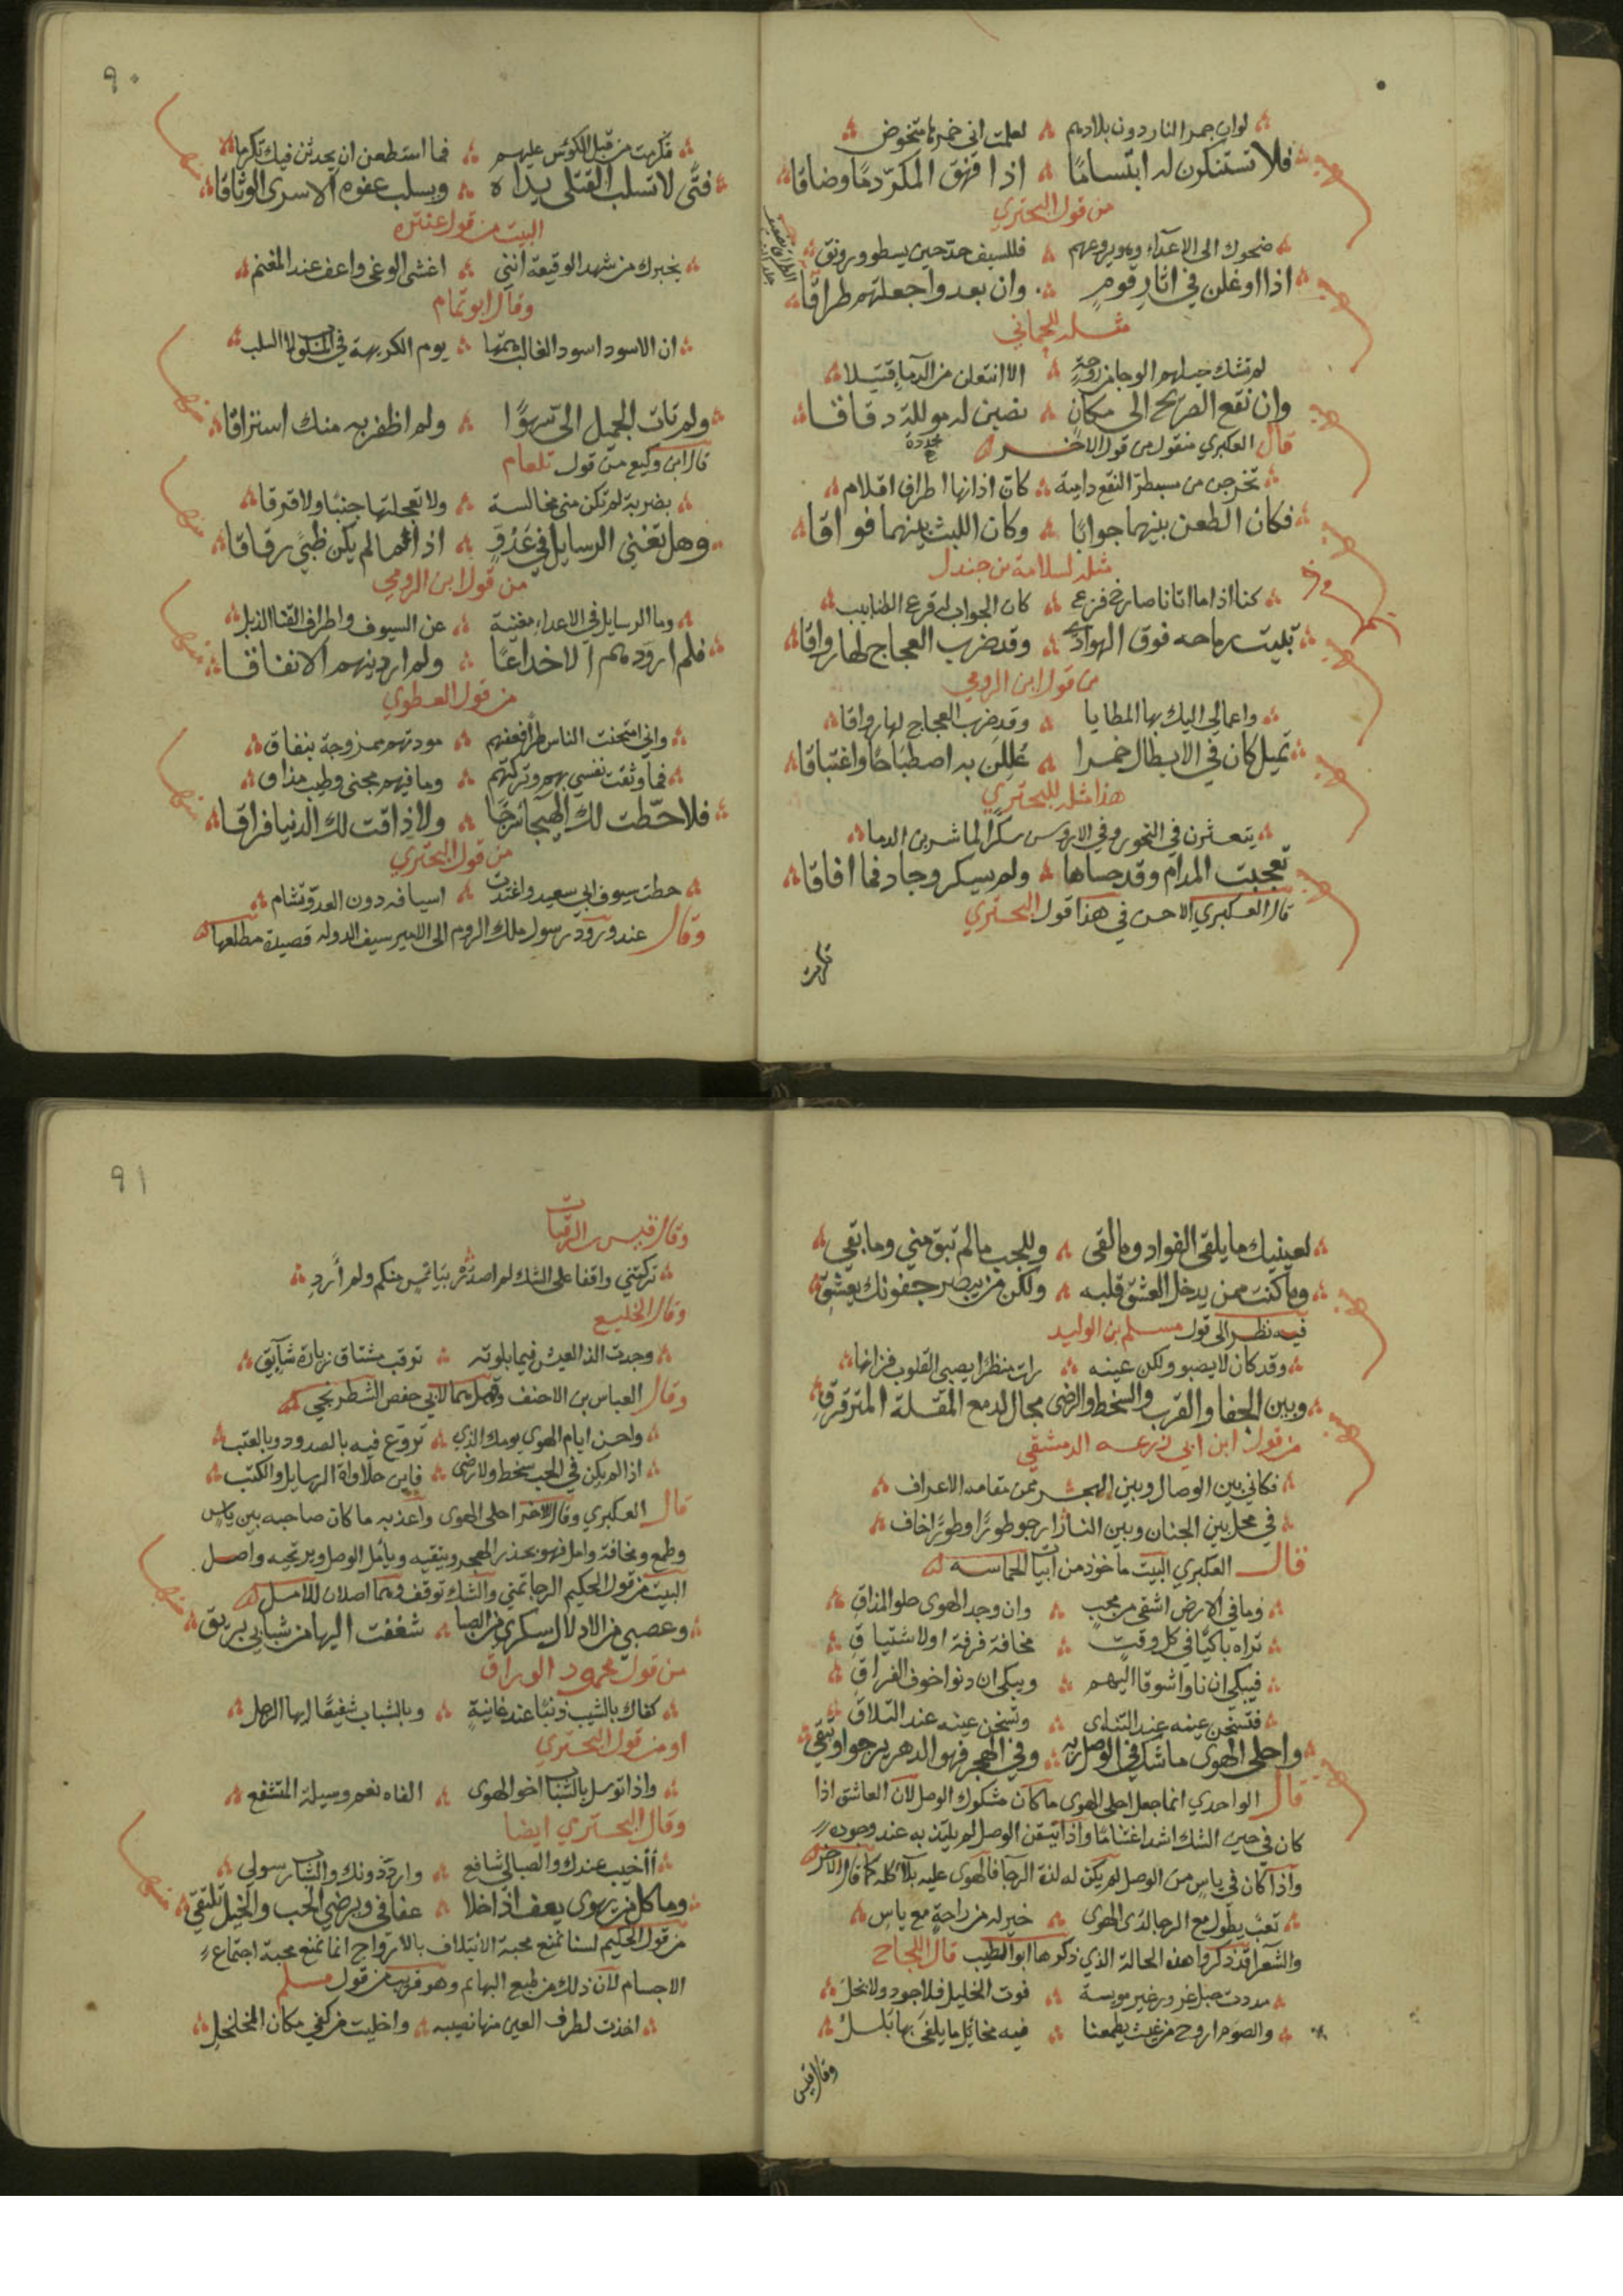 لوان جمر النار دون بلادهم ؞ لعلمت اني خمرها متخوض
فلا تستنكرن له ابتساما ؞ اذا فهق المكر دما وضاقا
من قول البحتري
ضحوك الى الاعداء وهو يروعهم ؞ فللسيف حد حين يسطو ورونق
اذا اوغلن في اثار قوم ؞ وان بعدوا جعلتهم طراقا
مثله للحماني
لم تشك خيلهم الوجا من روحة ؞ الا انتعلن من الدماء قتيلا
وان نقع الصريخ الى مكان ؞ نصبن له موللة دقاقا
محددة
قال العكبري منقول من قول الاخر
تخرجن من مسبطر النقع دامية ؞ كان اذانها اطراف اقلام
فكان الطعن بينهما جوابا ؞ وكان اللبث بينهما فواقا
مثله لسلامة بن جندل
كنا اذا ما اتانا صارخ فزع ؞ كان الجواب له قرع الظنابيب
تبيت رماحه فوق الهوادي ؞ وقد ضرب العجاج لها رواقا
من قول ابن الرومي
واعمالي اليك بها المطايا ؞ وقد ضرب العجاج لها رواقا
تميل كان في الابطال خمرا ؞ عللن به اصطباحا واغتباقا
هذا مثله للبحتري
يتعثرن في النحور وفي الاروس سكرا لما شربن الدما
تعجبت المدام وقد حساها ؞ ولم يسكر وجاد فما افاقا
قال العكبري الاحسن في هذا قول البحتري
تكرمت
٩٠
تكرمت من قبل الكوس عليهم ؞ فما اسطعن ان يحدثن فيك تكرما
فتى لا تسلب القتلى يداه ؞ ويسلب عفوه الاسرى الوثاقا
البيت من قول عنتره
يخبرك من شهد الوقيعة انني ؞ اغشى الوغى واعف عند المغنم
وقال ابو تمام
ان الاسود اسود الغاب همتها ؞ يوم الكريهة في المسلوب لا السلب
ولم تات الجميل الي سهوا ؞ ولم اظفر به منك استراقا
قال ابن وكيع من قول بلعام
بضربة لم تكن مني مخالسة ؞ ولا تعجلتها جبنا ولا فرقا
وهل تغني الرسايل في عدو ؞ اذا ما لم يكن ظبى رقاقا
من قول ابن الرومي
وما الرسايل في الاعداء مغنية ؞ عن السيوف واطراف القنا الذبل
فلم ار ودهم الا خداعا ؞ ولم ار دينهم الا نفاقا
من قول العطوي
واني امتحنت الناس طرا فعفتهم ؞ مودتهم ممزوجة بنفاق
فما وثقت نفسي بهم وتركتهم ؞ وما فيهم مجنى وطيب مذاق
فلا حطت لك الهيجاء سرجا ؞ ولا ذاقت لك الدنيا فراقا
من قول البحتري
حطت سيوف ابي سعيد واغتدت ؞ اسيافه دون العدو تشام
وقال عند ورود رسول ملك الروم الى الامير سيف الدوله قصيدة مطلعها
لعينيك ما يلقى الفواد وما لقى ؞ وللحب ما لم تبق مني وما بقي
وما كنت ممن يدخل العشق قلبه ؞ ولكن من يبصر جفونك يعشق
فيه نظر الى قول مسلم بن الوليد
وقد كان لا يصبو ولكن عينه ؞ رات منظرا يصبي القلوب فزانها
وبين الجفا والقرب والسخط والرضى مجال لدمع المقلة المترقرق
من قول ابن ابي زرعه الدمشقي
فكاني بين الوصال وبين الهجر ممن مقامه الاعراف
في محل بين الجنان وبين النار ارجو طورا وطورا اخاف
قال العكبري البيت ماخوذ من ابيات الحماسه
وما في الارض اشقى من محب ؞ وان وجد الهوى حلو المذاق
تراه باكيا في كل وقت ؞ مخافة فرقة او لاشتياق
فيبكي ان ناوا شوقا اليهم ؞ ويبكي ان دنوا خوف الفراق
فتسخن عينه عند التناي ؞ وتسخن عينه عند التلاق
واحلى الهوى ما شك في الوصل ربه ؞ وفي الهجر فهو الدهر يرجو او يتقي
قال الواحدي انما جعل احلى الهوى ما كان مشكوك الوصل لان العاشق اذا
كان في حيز الشك اشد اغتناما واذا تيقن الوصل لم يلتذ به عند وجوده
واذا كان في ياس من الوصل لم يكن له لذة الرجا فالهوى عليه بلا كله كما قال الاخر
تعب يطول مع الرجا لذى الهوى ؞ خير له من راحة مع ياس
والشعراء قد ذكروا هذه الحالة الذي ذكرها ابو الطيب قال اللجاج
مددت حبل غرور غير مويسة ؞ فوت الخليل فلا جود ولا بخل
والصوم اروح من غيث يطمعنا ؞ فيه مخائل ما يلفى بها بلل
وقال قيس
٩١
وقال قيس بن الرقيات
تركتني واقفا على الشك لم اصدر بياس منكم ولم ارد
وقال الخليع
وجدت الذ العيش فيما بلوته ؞ توقب مشتاق زيارة شايق
وقال العباس بن الاحنف وقيل هما لابي حفص الشطرنجي
واحسن ايام الهوى يومك الذي ؞ تروع فيه بالصدود وبالعتب
اذا لم يكن في الحب سخط ولا رضى ؞ فاين حلاوات الرسايل والكتب
قال العكبري وقال الاخر احلى الهوى واعذبه ما كان صاحبه بين ياس
وطمع ومخافة وامل فهو يحذر الهجر ويتقيه ويامل الوصل ويرتجيه واصل
البيت من قول الحكيم الرجا تمني والشك توقف وهما اصلان للامل
وغضبى من الادلال سكرى من الصبا ؞ شفعت اليها من شبابي بريق
من قول محمود الوراق
كفاك بالشيب ذنبا عند غانية ؞ وبالشباب شفيعا ايها الرجل
او من قول البحتري
واذا توسل بالشباب اخو الهوى ؞ الفاه نعم وسيلة المتشفع
وقال البحتري ايضا
أأخيب عندك والصبا لي شافع ؞ وارد دونك والشباب رسولي
وما كل من يهوى يعف اذا خلا ؞ عفافي ويرضي الحب والخيل تلتقي
من قول الحكيم لسنا نمنع محبة الائتلاف بالارواح انما نمنع محبة اجتماع
الاجسام لان ذلك من طبع البهائم وهو قريب من قول مسلم
اخذت لطرف العين منها نصيبه ؞ واخليت من كفي مكان المخلخل